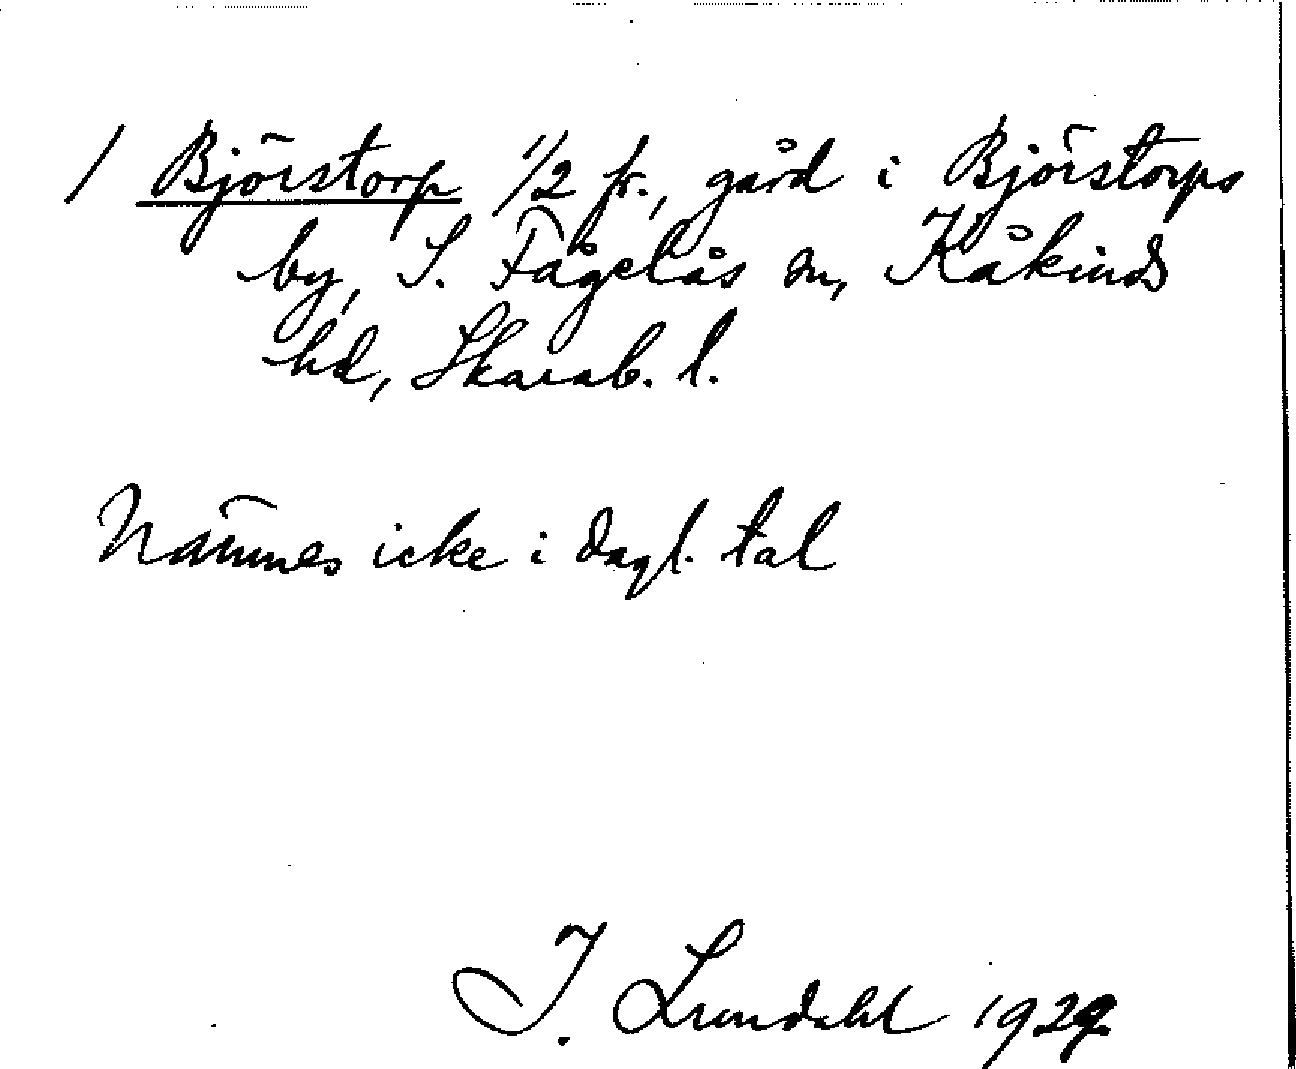 1 Björstorp 1/2 fr., gård i Björstorps
by, S. Fågelås sn, Kåkinds
hd, Skarab. l.
Nämnes icke i dagl. tal
I. Lundahl 1929